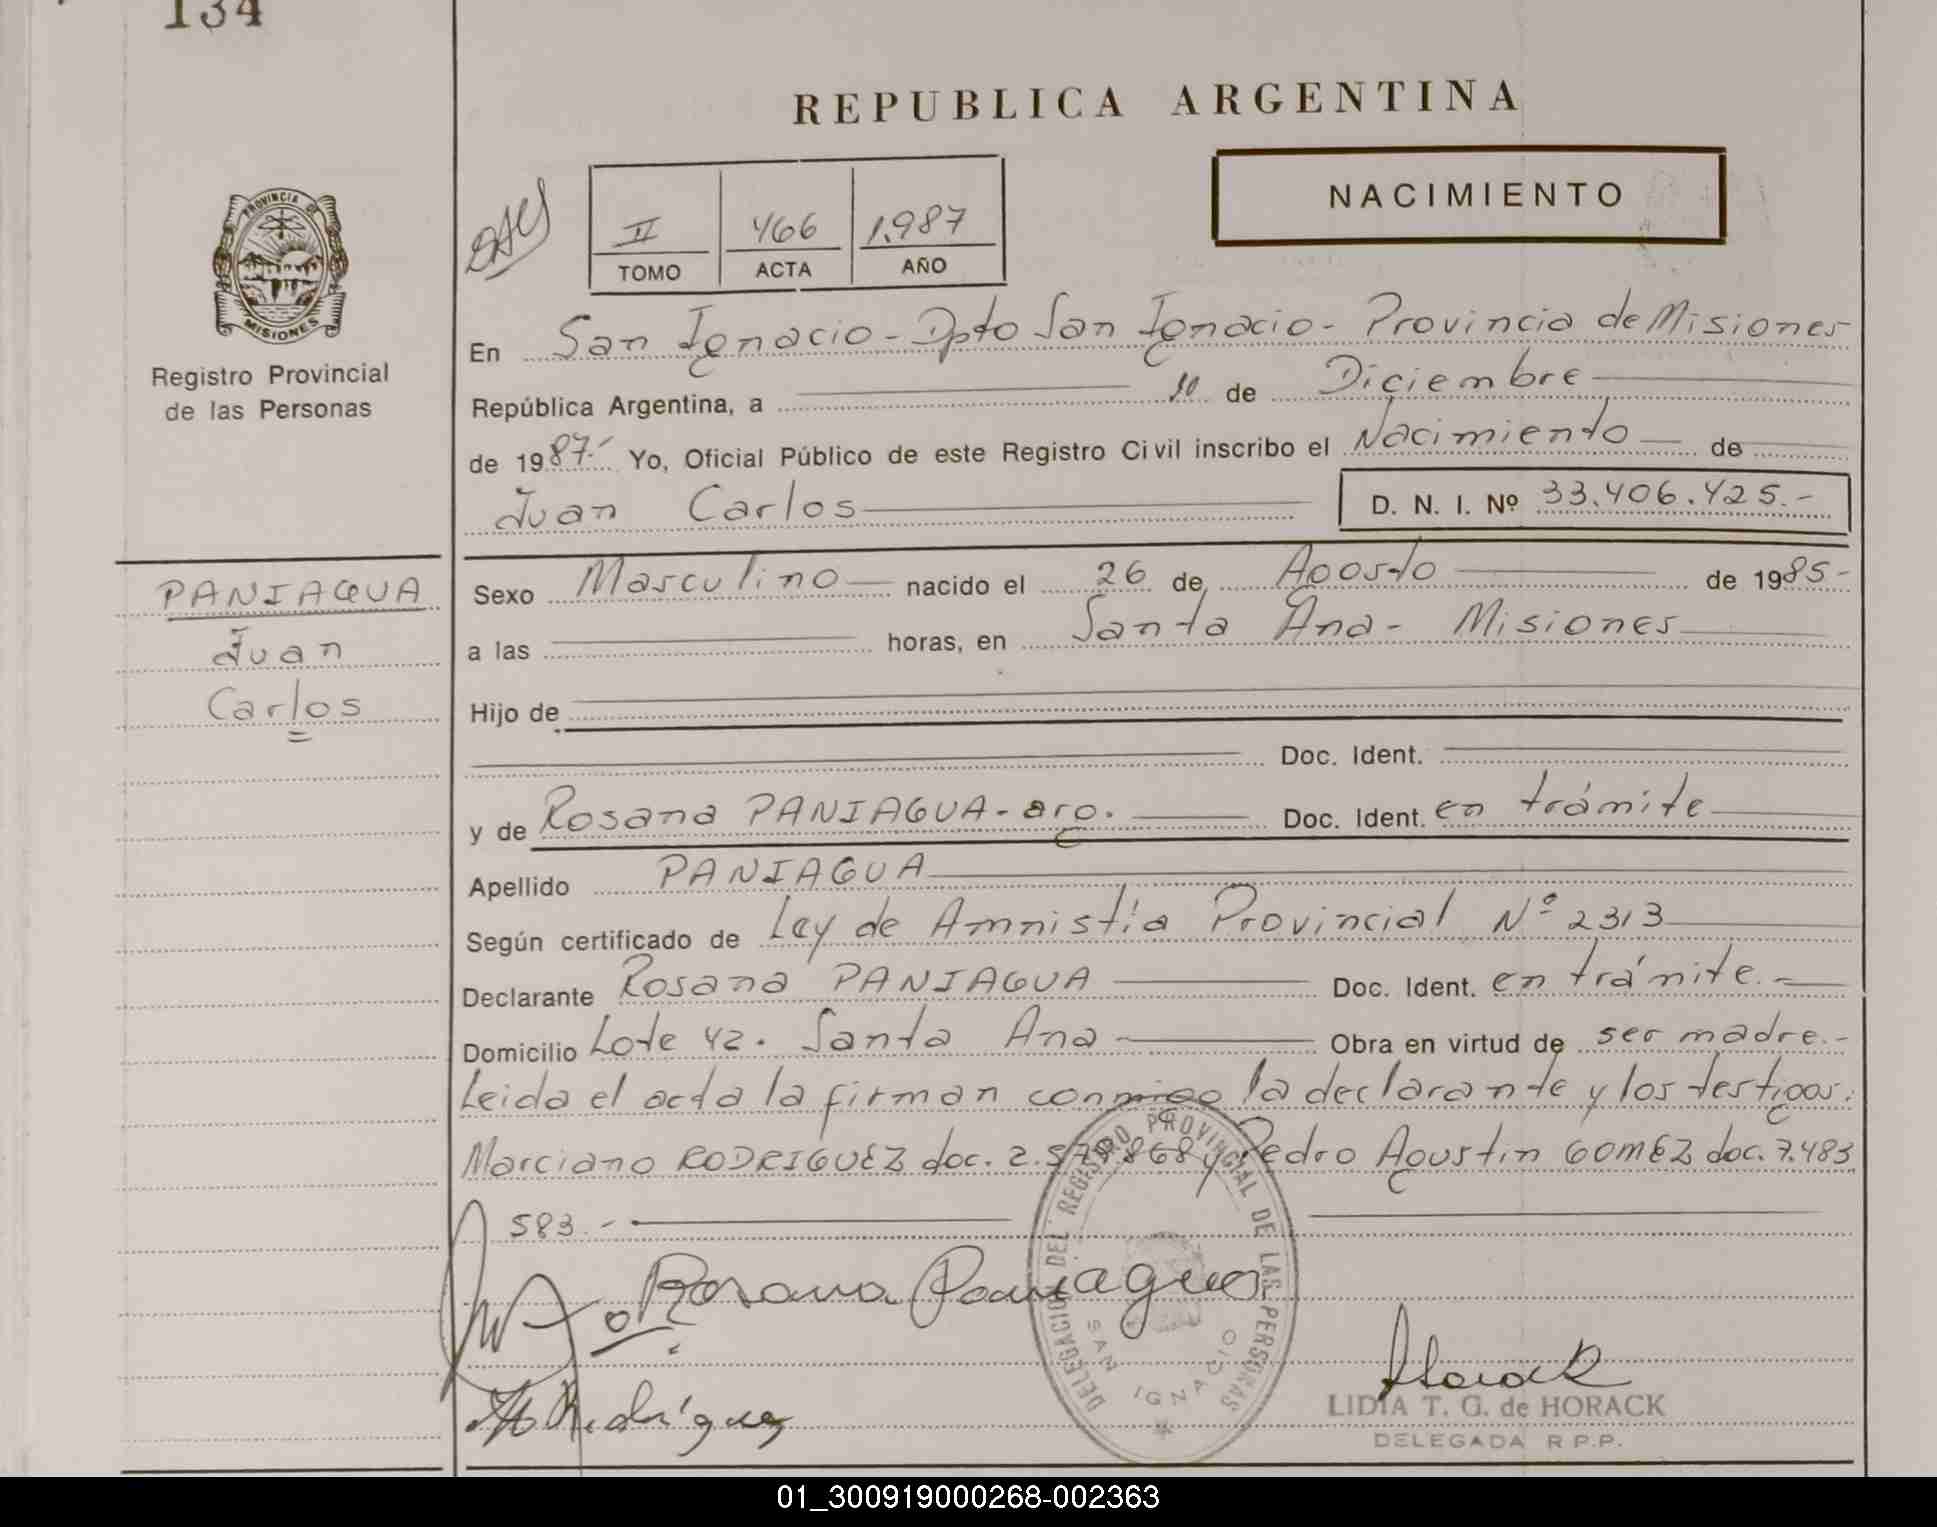 134
REPUBLICA ARGENTINA
NACIMIENTO
II 466 1.987
TOMO ACTA AÑO
PROVINCIA DE
MISIONES
Registro Provincial
de las Personas
En San Ignacio - Dpto San Ignacio - Provincia de Misiones
República Argentina, a 10 de Diciembre
de 1987.- Yo, Oficial Público de este Registro Civil inscribo el Nacimiento de
Juan Carlos D. N. I. Nº 33.406.425.-
PANIAGUA
Juan
Carlos
Sexo Masculino nacido el 26 de Agosto de 1985-
a las horas, en Santa Ana - Misiones
Hijo de
Doc. Ident.
y de Rosana PANIAGUA - arg. Doc. Ident. en trámite
Apellido PANIAGUA
Según certificado de Ley de Amnistía Provincial Nº 2313
Declarante Rosana PANIAGUA Doc. Ident. en trámite.-
Domicilio Lote 42. Santa Ana Obra en virtud de ser madre.-
Leida el acta la firman conmigo la declarante y los testigos:
Marciano RODRIGUEZ doc. 2. y Pedro Agustin GOMEZ doc. 7.483
583.-
Rosana Paniagua
DELEGACION DEL REGISTRO PROVINCIAL DE LAS PERSONAS
SAN IGNACIO
Rodríguez
Horack
LIDIA T. G. de HORACK
DELEGADA R.P.P.
01_300919000268-002363